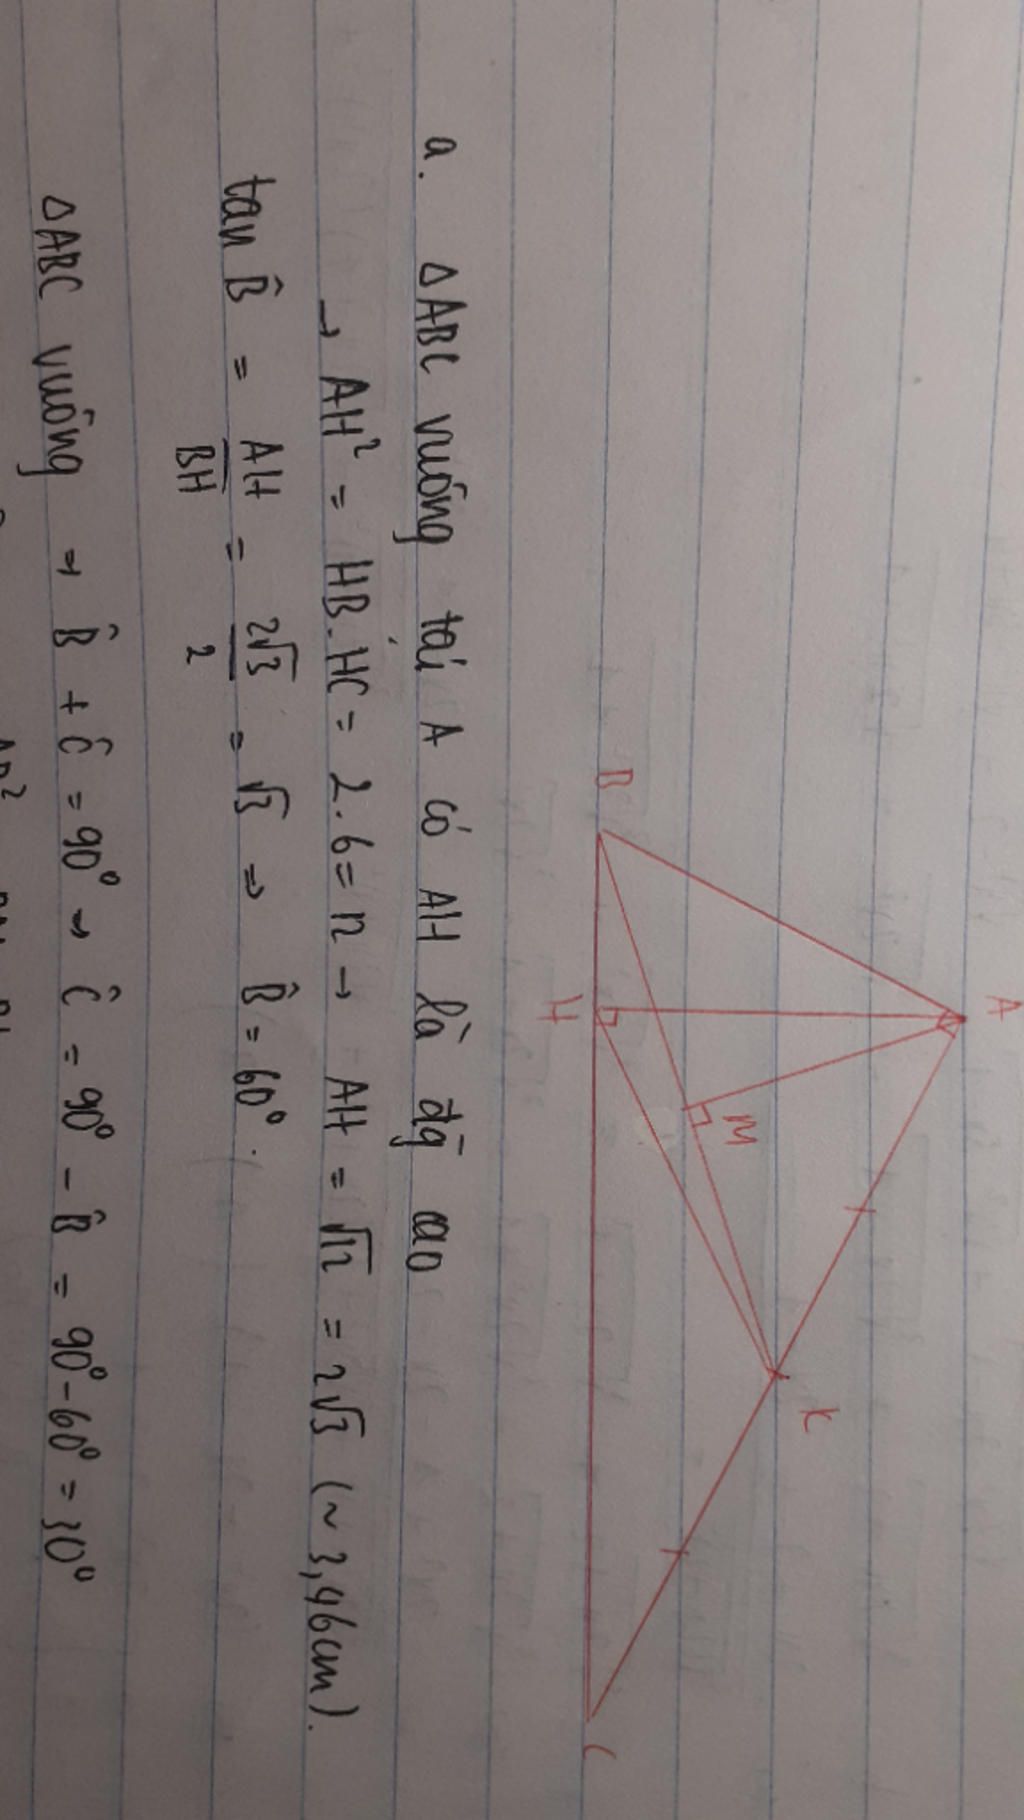 A
K
M
B
H
C
a. ΔABC vuông tại A có AH là đg cao
→ AH² = HB.HC = 2.6 = 12 → AH = √12 = 2√3 (~ 3,46cm).
tan B̂ = AH/BH = 2√3/2 = √3 ⇒ B̂ = 60°.
ΔABC vuông → B̂ + Ĉ = 90° → Ĉ = 90° - B̂ = 90° - 60° = 30°